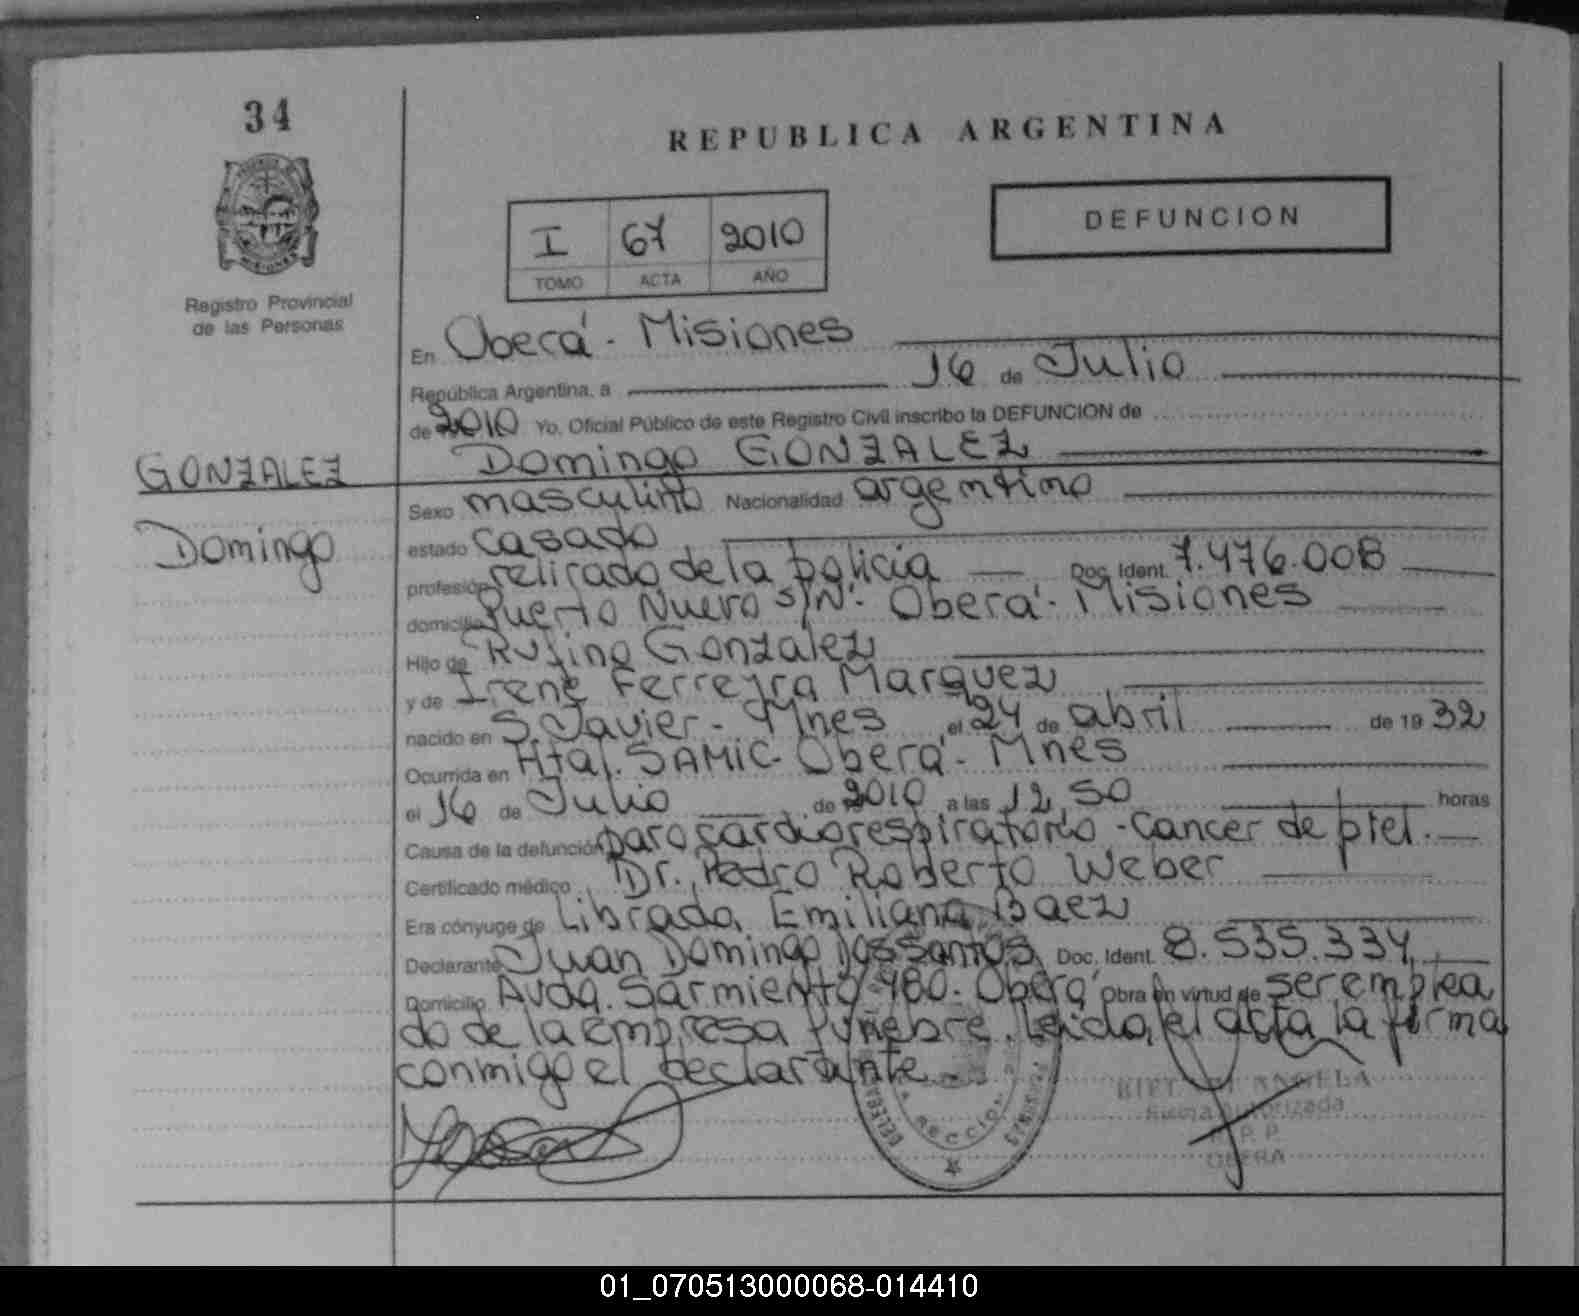 34
REPUBLICA ARGENTINA
DEFUNCION
I 67 2010
TOMO ACTA AÑO
Registro Provincial
de las Personas
MISIONES
En Oberá - Misiones
República Argentina, a 16 de Julio
de 2010 Yo, Oficial Público de este Registro Civil inscribo la DEFUNCION de
Domingo GONZALEZ
GONZALEZ
Domingo
Sexo masculino Nacionalidad argentino
estado casado
profesión retirado de la policía Doc. Ident. 7.476.008
domicilio Puerto Nuevo S/N°- Oberá - Misiones
Hijo de Rufino Gonzalez
y de Irene Ferreyra Marquez
nacido en S. Javier - Mnes el 24 de abril de 19 32
Ocurrida en Htal. SAMIC - Oberá - Mnes
el 16 de Julio de 2010 a las 12,50 horas
Causa de la defunción paro cardiorespiratorio - Cancer de piel.
Certificado médico Dr. Pedro Roberto Weber
Era cónyuge de Librada Emiliana Baez
Declarante Juan Domingo Dos Santos Doc. Ident. 8.535.334
Domicilio Avda. Sarmiento 980 - Oberá Obra en virtud de ser emplea
do de la empresa fúnebre. Leida el acta la firma
conmigo el declarante
ANGELA
Firma Autorizada
OBERA
01_070513000068-014410